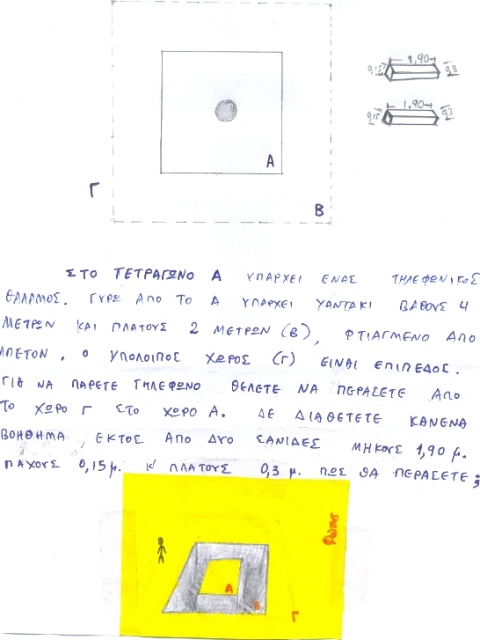 1,90
0,15
0,3
1,90
0,15
0,3
A
Γ
B
ΣΤΟ ΤΕΤΡΑΓΩΝΟ Α ΥΠΑΡΧΕΙ ΕΝΑΣ ΤΗΛΕΦΩΝΙΚΟΣ
ΘΑΛΑΜΟΣ. ΓΥΡΩ ΑΠΟ ΤΟ Α ΥΠΑΡΧΕΙ ΧΑΝΤΑΚΙ ΒΑΘΟΥΣ 4
ΜΕΤΡΩΝ ΚΑΙ ΠΛΑΤΟΥΣ 2 ΜΕΤΡΩΝ (Β), ΦΤΙΑΓΜΕΝΟ ΑΠΟ
ΜΠΕΤΟΝ. Ο ΥΠΟΛΟΙΠΟΣ ΧΩΡΟΣ (Γ) ΕΙΝΑΙ ΕΠΙΠΕΔΟΣ.
ΓΙΑ ΝΑ ΠΑΡΕΤΕ ΤΗΛΕΦΩΝΟ ΘΕΛΕΤΕ ΝΑ ΠΕΡΑΣΕΤΕ ΑΠΟ
ΤΟ ΧΩΡΟ Γ ΣΤΟ ΧΩΡΟ Α. ΔΕ ΔΙΑΘΕΤΕΤΕ ΚΑΝΕΝΑ
ΒΟΗΘΗΜΑ, ΕΚΤΟΣ ΑΠΟ ΔΥΟ ΣΑΝΙΔΕΣ ΜΗΚΟΥΣ 1,90 μ.
ΠΑΧΟΥΣ 0,15μ. Κ' ΠΛΑΤΟΥΣ 0,3 μ. ΠΩΣ ΘΑ ΠΕΡΑΣΕΤΕ;
A
B
Γ